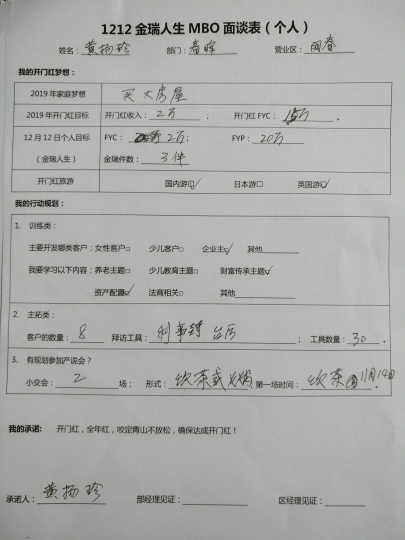 1212金瑞人生MBO面谈表（个人）
姓名：黄扬珍 部门：春晖 营业区：阳春
我的开门红梦想：
2019年家庭梦想 买大房屋
2019年开门红目标 开门红收入：2万； 开门红FYC：15万。
12月12日个人目标 FYC：2万； FYP：20万
（金瑞人生） 金瑞件数：3件
开门红旅游 国内游☑ 日本游□ 英国游☑
我的行动规划：
1. 训练类：
主要开发哪类客户：女性客户□ 少儿客户□ 企业主☑ 其他
我要学习以下内容：养老主题□ 少儿教育主题□ 财富传承主题☑
资产配置☑ 法商相关□ 其他
2. 主拓类：
客户的数量：8 拜访工具：利事封 台历； 工具数量：30。
3. 有规划参加产说会？
小交会：2场； 形式：饮茶或 第一场时间：饮茶 11月14日。
我的承诺： 开门红，全年红，咬定青山不放松，确保达成开门红！
承诺人：黄扬珍 部经理见证： 区经理见证：